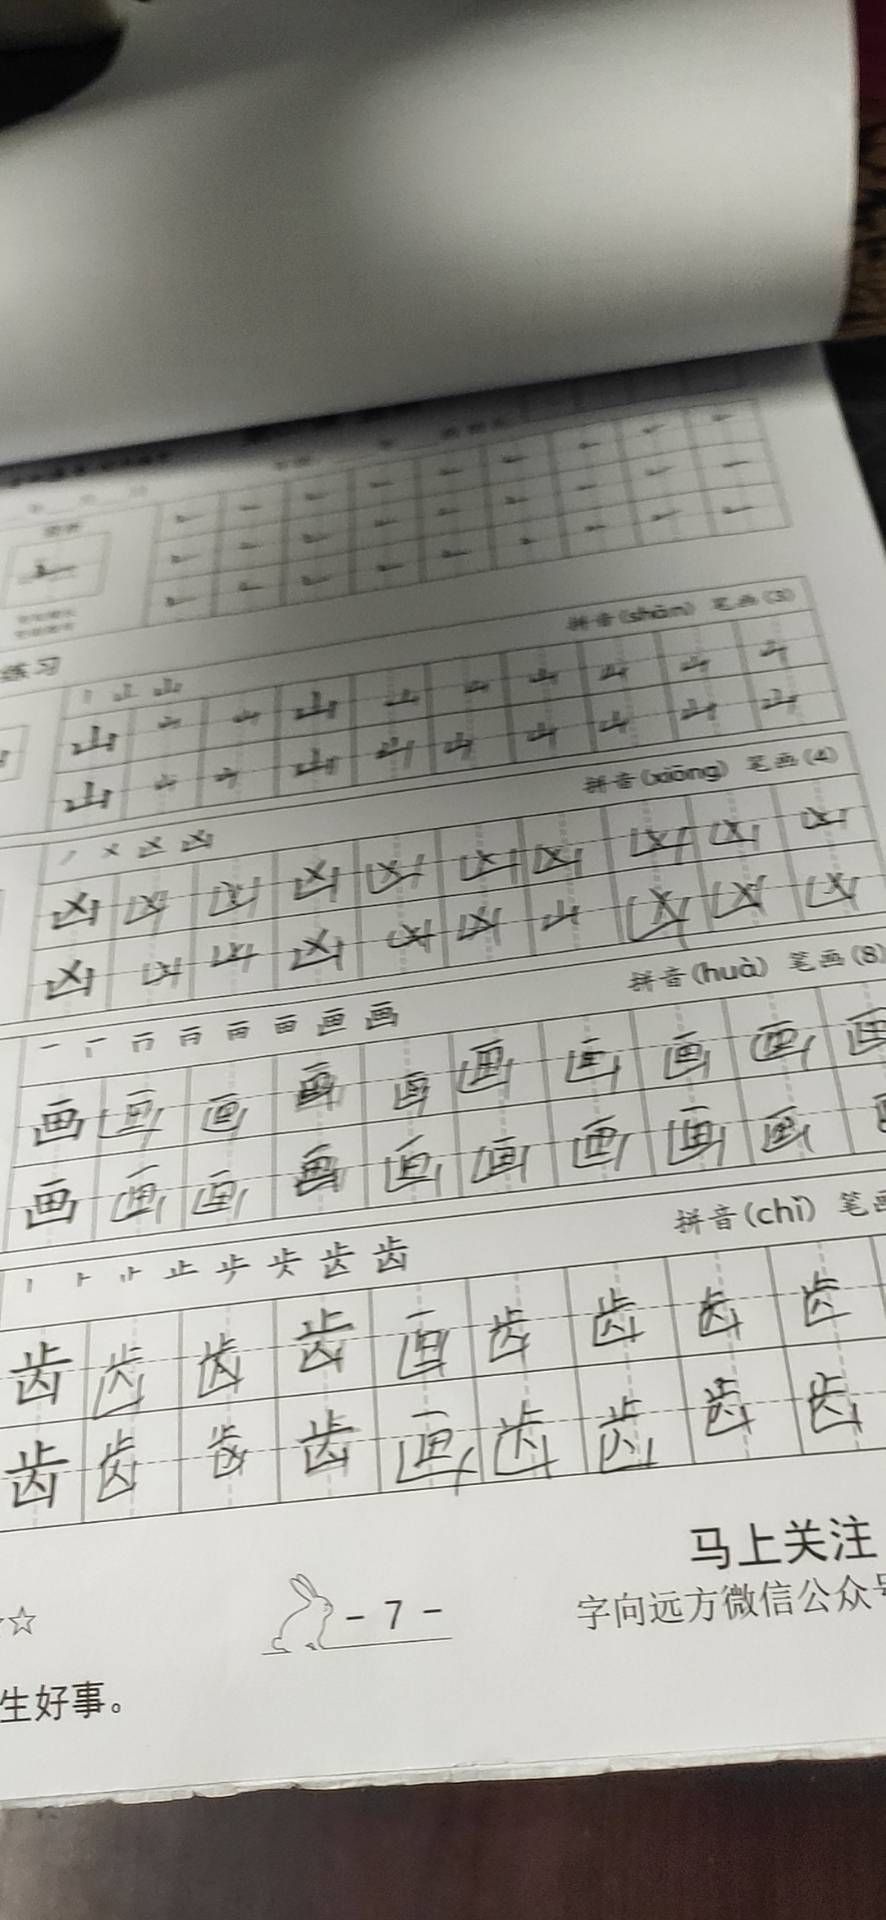 练习
拼音(shān) 笔画(3)
丨 山 山
山 山 山 山 山 山 山 山 山 山
山 山 山 山 山 山 山 山 山 山
拼音(xiōng) 笔画(4)
凶
凶 凶 凶 凶 凶 凶 凶 凶 凶 凶
凶 凶 凶 凶 凶 凶 山 凶 凶 凶
拼音(huà) 笔画(8)
一 画
画 画 画 画 画 画 画 画 画 画
画 画 画 画 画 画 画 画 画
拼音(chǐ) 笔画
丨 止 齿
齿 齿 齿 齿 画 齿 齿 齿 齿
齿 齿 齿 齿 画 齿 齿 齿 齿
马上关注
☆
- 7 -
字向远方微信公众号
生好事。